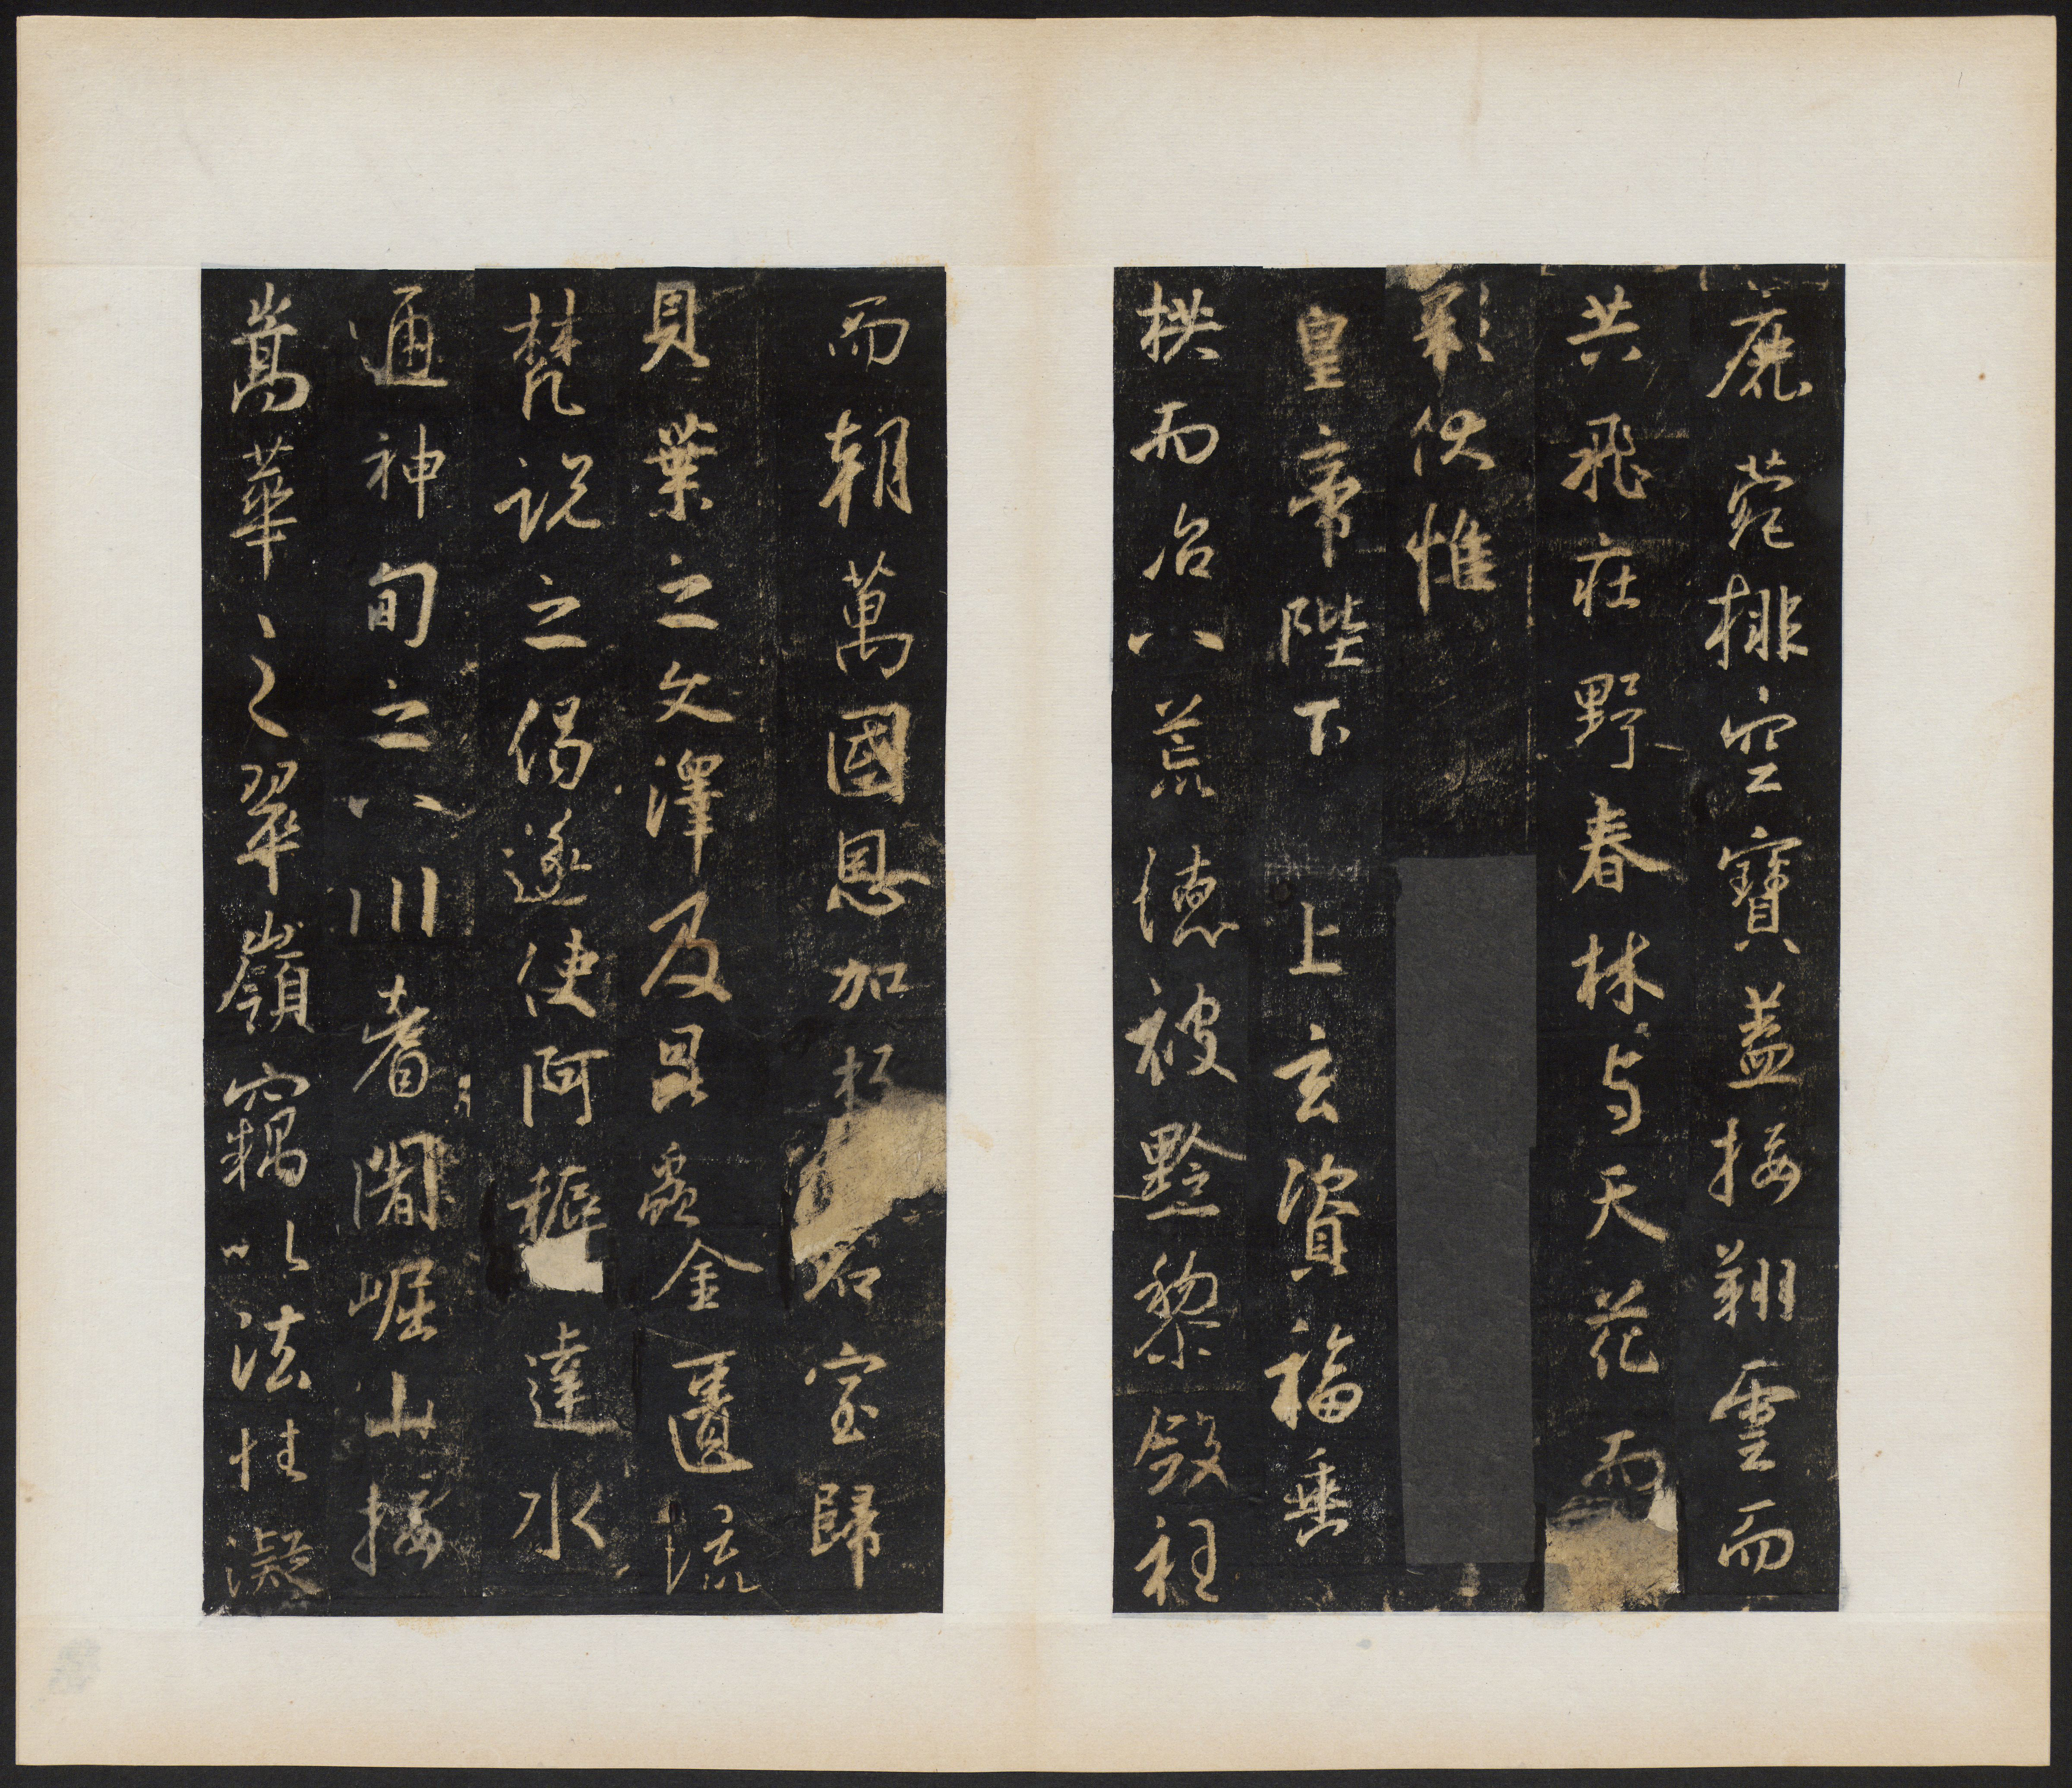 鹿菀排空寶蓋接翔雲而
共飛莊野春林与天花而
彩伏惟
皇帝陛下上玄資福垂
拱而治八荒德被黔黎斂衽
而朝萬國恩加朽石室歸
貝葉之文澤及昆蟲金匱流
梵說之偈遂使阿耨達水
通神甸之八川耆闍崛山接
嵩華之翠嶺竊以法性凝